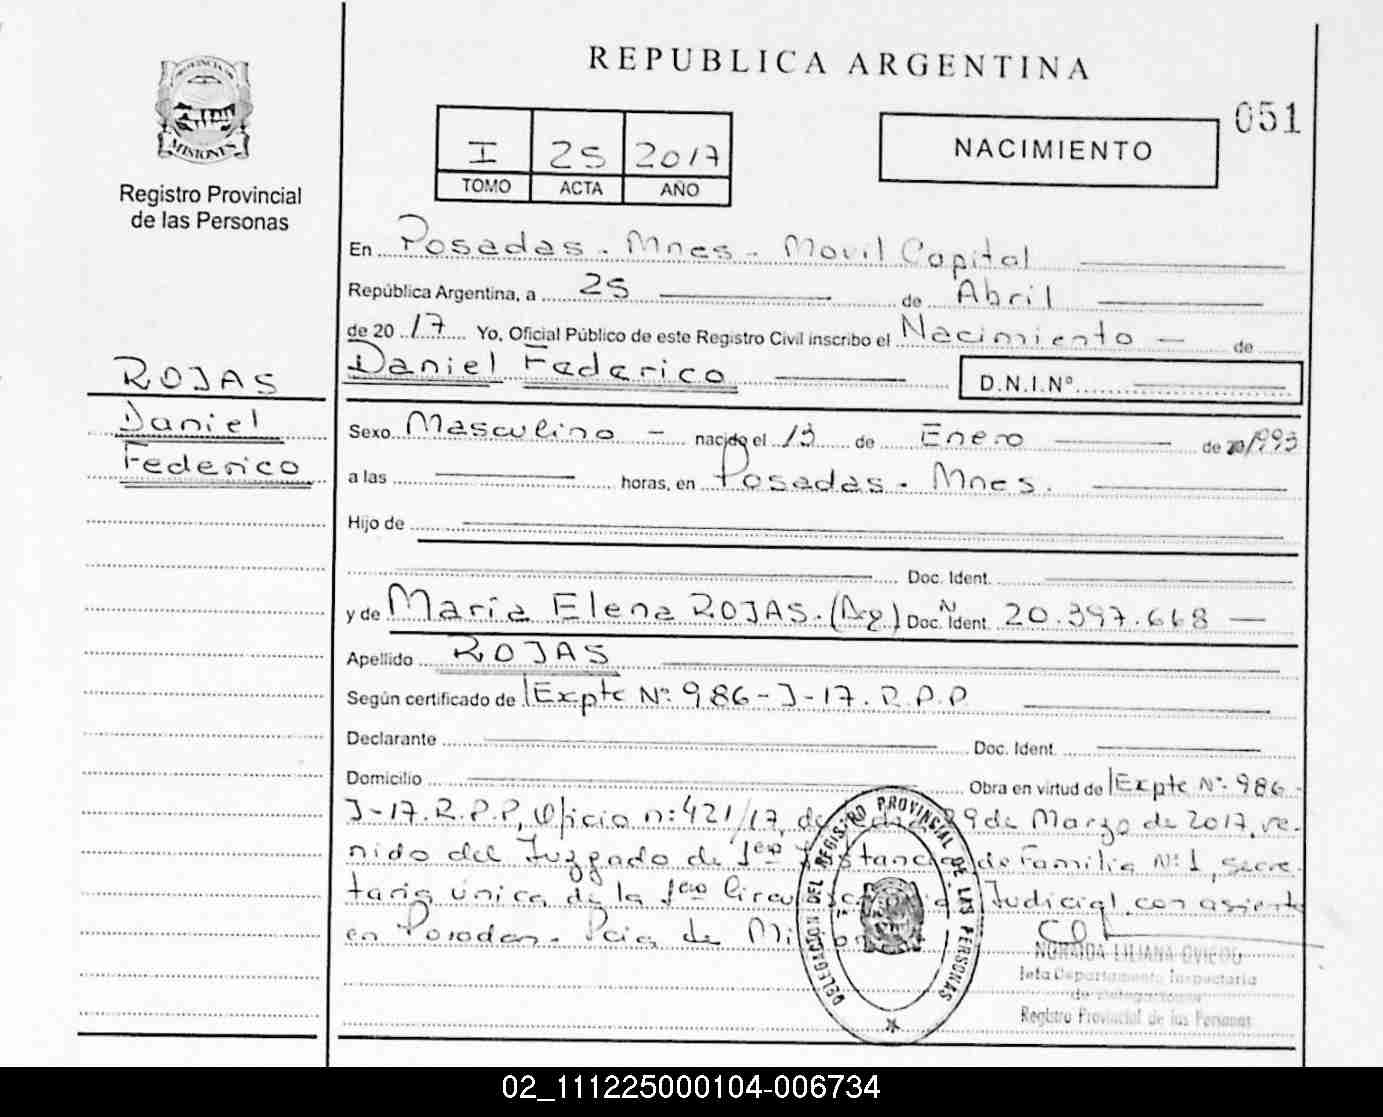 REPUBLICA ARGENTINA
051
PROVINCIA DE
MISIONES
Registro Provincial
de las Personas
I 25 2017
TOMO ACTA AÑO
NACIMIENTO
En Posadas - Mnes - Movil Capital
República Argentina, a 25 de Abril
de 20 17 Yo, Oficial Público de este Registro Civil inscribo el Nacimiento - de
Daniel Federico D.N.I.Nº
ROJAS
Daniel
Federico
Sexo Masculino - nacido el 13 de Enero de 1993
a las horas, en Posadas - Mnes.
Hijo de
Doc. Ident.
y de María Elena ROJAS. (Arg) Doc. Ident. N 20.397.668
Apellido ROJAS
Según certificado de Expte Nº 986-J-17. R.P.P
Declarante Doc. Ident.
Domicilio Obra en virtud de Expte Nº 986-
J-17. R.P.P, Oficio n: 421/17, de 29 de Marzo de 2017, ve-
nido del Juzgado de 1era Instancia de Familia Nº 1, secre-
taria única de la 1era Judicial, con asiento
en Posadas - Pcia de
DELEGACION DEL REGISTRO PROVINCIAL DE LAS PERSONAS
LILIANA OVIEDO
Jefa Departamento Inspectoria
de Delegaciones
Registro Provincial de las Personas
02_111225000104-006734